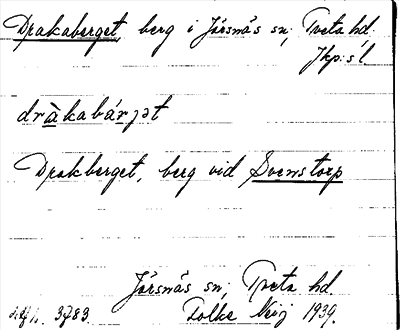 Drakaberget, berg i Järsnäs sn; Tveta hd.
Jkp:s l
dràkabárjət
Drakberget, berg vid Svenstorp
Järsnäs sn; Tveta hd
3783. Folke 1939.